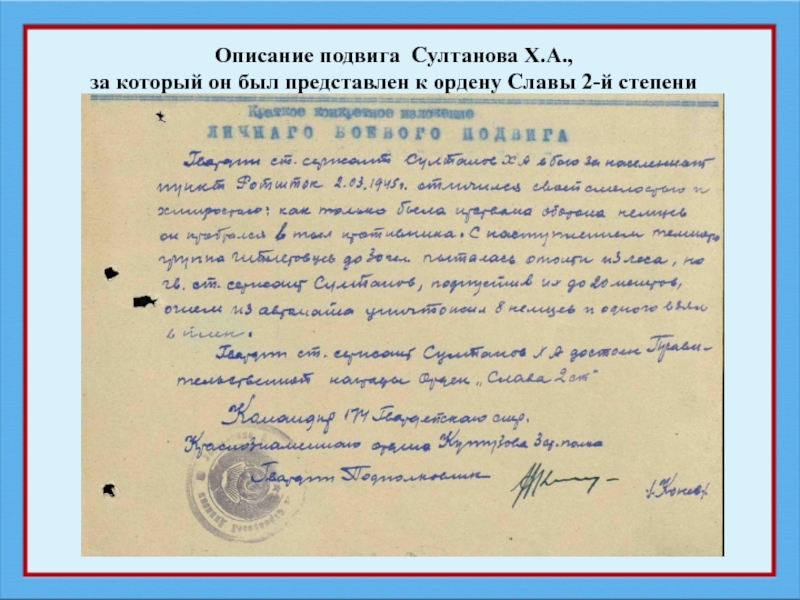 Описание подвига Султанова Х.А.,
за который он был представлен к ордену Славы 2-й степени
Краткое конкретное изложение
ЛИЧНАГО БОЕВОГО ПОДВИГА
Гвардии ст. сержант Султанов Х А в бою за населенный
пункт Ротшток 2.03.1945г. отличился своей смелостью и
хитростью: как только была прорвана оборона немцев
он пробрался в тыл противника. С наступлением темноты
группа гитлеровцев до 30 чел. пыталась отойти из леса, но
гв. ст. сержант Султанов, подпустив их до 20 метров,
огнем из автомата уничтожил 8 немцев и одного взял
в плен.
Гвардии ст. сержант Султанов Х А достоин Прави-
тельственной награды Орден „Слава 2 ст"
Командир 174 Гвардейского стр.
Краснознаменного ордена Кутузова 3 ст. полка
Гвардии Подполковник
/Конев/